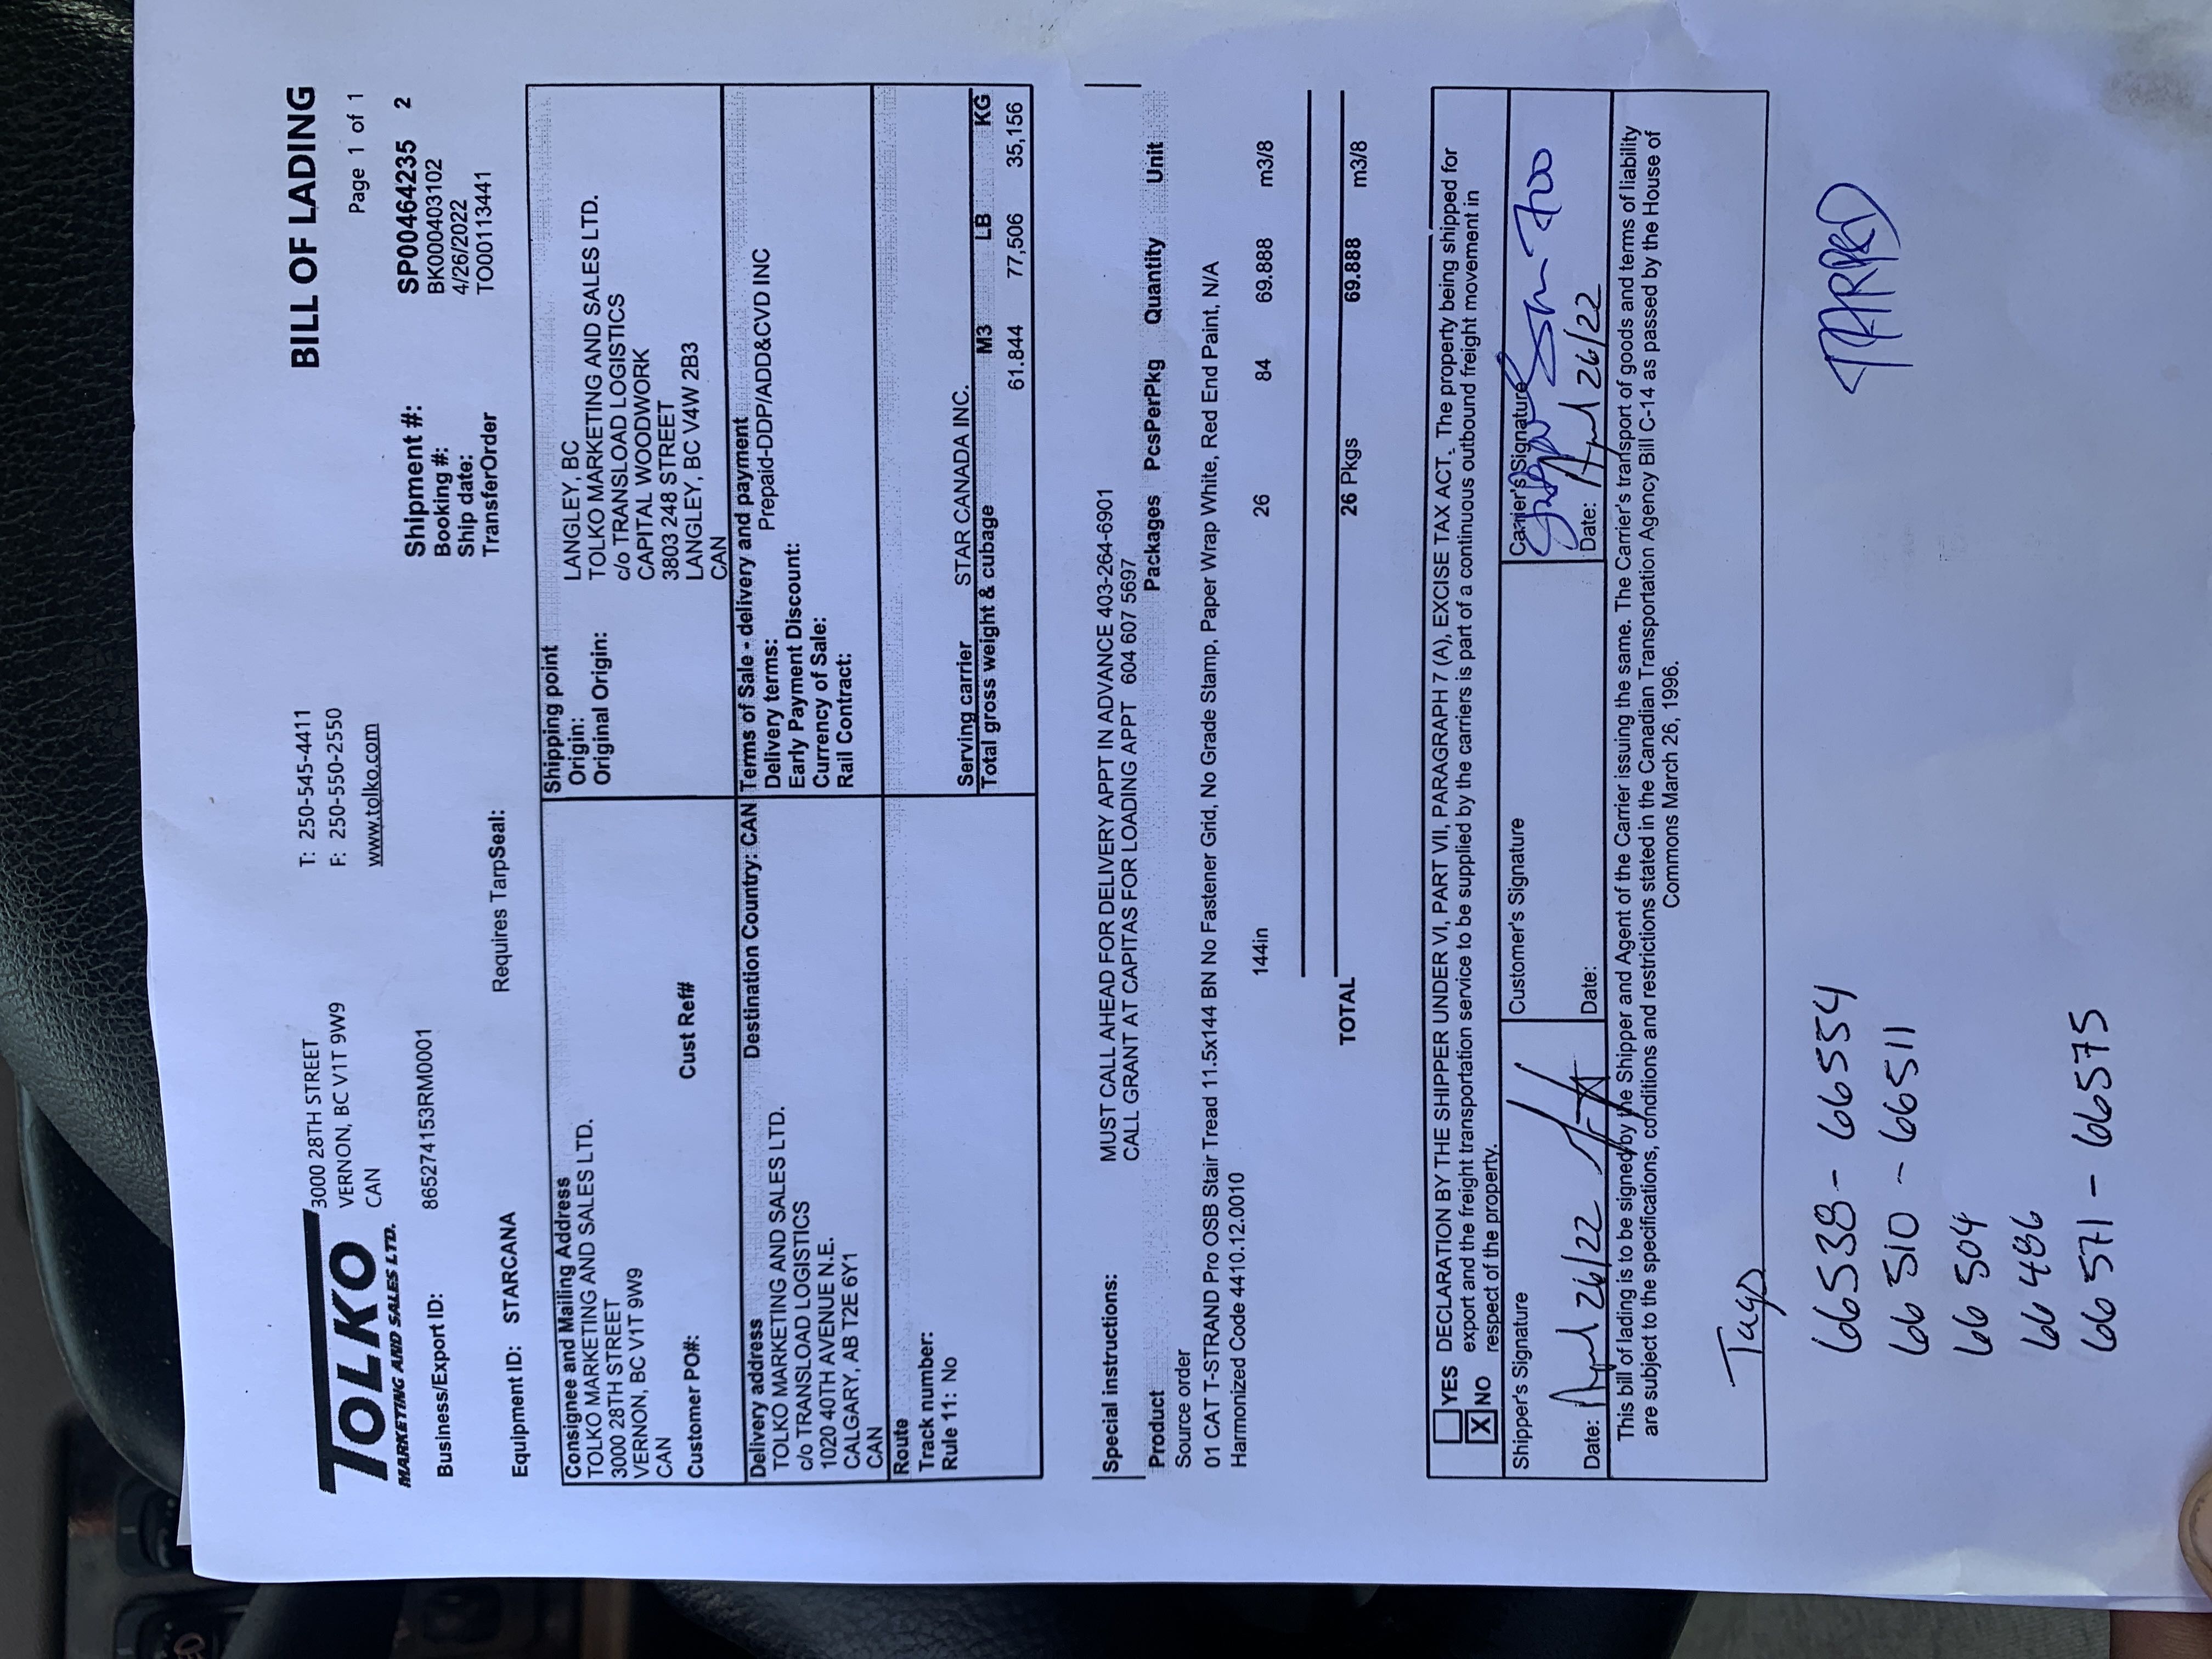 TOLKO
MARKETING AND SALES LTD.
3000 28TH STREET
VERNON, BC V1T 9W9
CAN
T: 250-545-4411
F: 250-550-2550
www.tolko.com
BILL OF LADING
Page 1 of 1
Business/Export ID: 865274153RM0001
Shipment #: SP00464235 2
Booking #: BK000403102
Ship date: 4/26/2022
TransferOrder TO00113441
Equipment ID: STARCANA
Requires TarpSeal:
Consignee and Mailing Address
TOLKO MARKETING AND SALES LTD.
3000 28TH STREET
VERNON, BC V1T 9W9
CAN
Customer PO#: Cust Ref#
Shipping point
Origin: LANGLEY, BC
Original Origin: TOLKO MARKETING AND SALES LTD.
c/o TRANSLOAD LOGISTICS
CAPITAL WOODWORK
3803 248 STREET
LANGLEY, BC V4W 2B3
CAN
Delivery address Destination Country: CAN
TOLKO MARKETING AND SALES LTD.
c/o TRANSLOAD LOGISTICS
1020 40TH AVENUE N.E.
CALGARY, AB T2E 6Y1
CAN
Terms of Sale - delivery and payment
Delivery terms: Prepaid-DDP/ADD&CVD INC
Early Payment Discount:
Currency of Sale:
Rail Contract:
Route
Track number:
Rule 11: No
Serving carrier STAR CANADA INC.
Total gross weight & cubage M3 LB KG
61.844 77,506 35,156
Special instructions: MUST CALL AHEAD FOR DELIVERY APPT IN ADVANCE 403-264-6901
CALL GRANT AT CAPITAS FOR LOADING APPT 604 607 5697
Product Packages PcsPerPkg Quantity Unit
Source order
01 CAT T-STRAND Pro OSB Stair Tread 11.5x144 BN No Fastener Grid, No Grade Stamp, Paper Wrap White, Red End Paint, N/A
Harmonized Code 4410.12.0010
144in 26 84 69.888 m3/8
TOTAL 26 Pkgs 69.888 m3/8
YES DECLARATION BY THE SHIPPER UNDER VI, PART VII, PARAGRAPH 7 (A), EXCISE TAX ACT. The property being shipped for
X NO export and the freight transportation service to be supplied by the carriers is part of a continuous outbound freight movement in
respect of the property.
Shipper's Signature
Date: April 26/22
Customer's Signature
Date:
Carrier's Signature
700
Date: April 26/22
This bill of lading is to be signed by the Shipper and Agent of the Carrier issuing the same. The Carrier's transport of goods and terms of liability
are subject to the specifications, conditions and restrictions stated in the Canadian Transportation Agency Bill C-14 as passed by the House of
Commons March 26, 1996.
Tags
66538 - 66554
66510 - 66511
66504
66486
66571 - 66575
TARPED